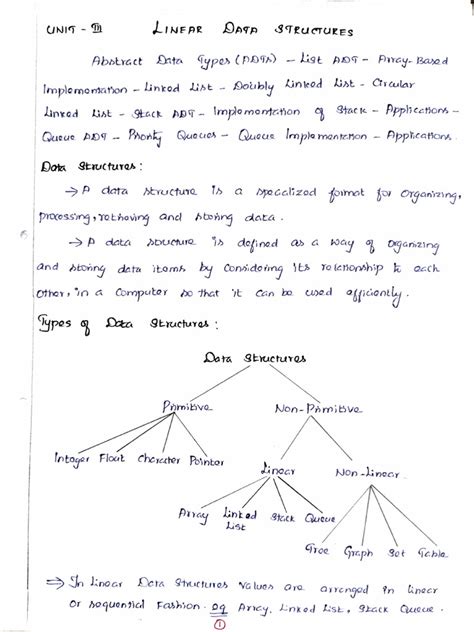 UNIT - III LINEAR DATA STRUCTURES
Abstract Data Types (ADTs) - List ADT - Array-Based
Implementation - Linked List - Doubly Linked List - Circular
Linked List - Stack ADT - Implementation of Stack - Applications -
Queue ADT - Priority Queues - Queue Implementation - Applications.
Data Structures :
→ A data structure is a specialized format for organizing,
processing, retrieving and storing data.
→ A data structure is defined as a way of organizing
and storing data items by considering its relationship to each
other, in a computer so that it can be used efficiently.
Types of Data Structures :
Data Structures
Primitive Non-Primitive
Integer Float Character Pointer
Linear Non-Linear
Array Linked List Stack Queue
Tree Graph Set Table
⇒ In Linear Data Structures values are arranged in linear
or sequential Fashion. eg Array, Linked List, Stack Queue.
1